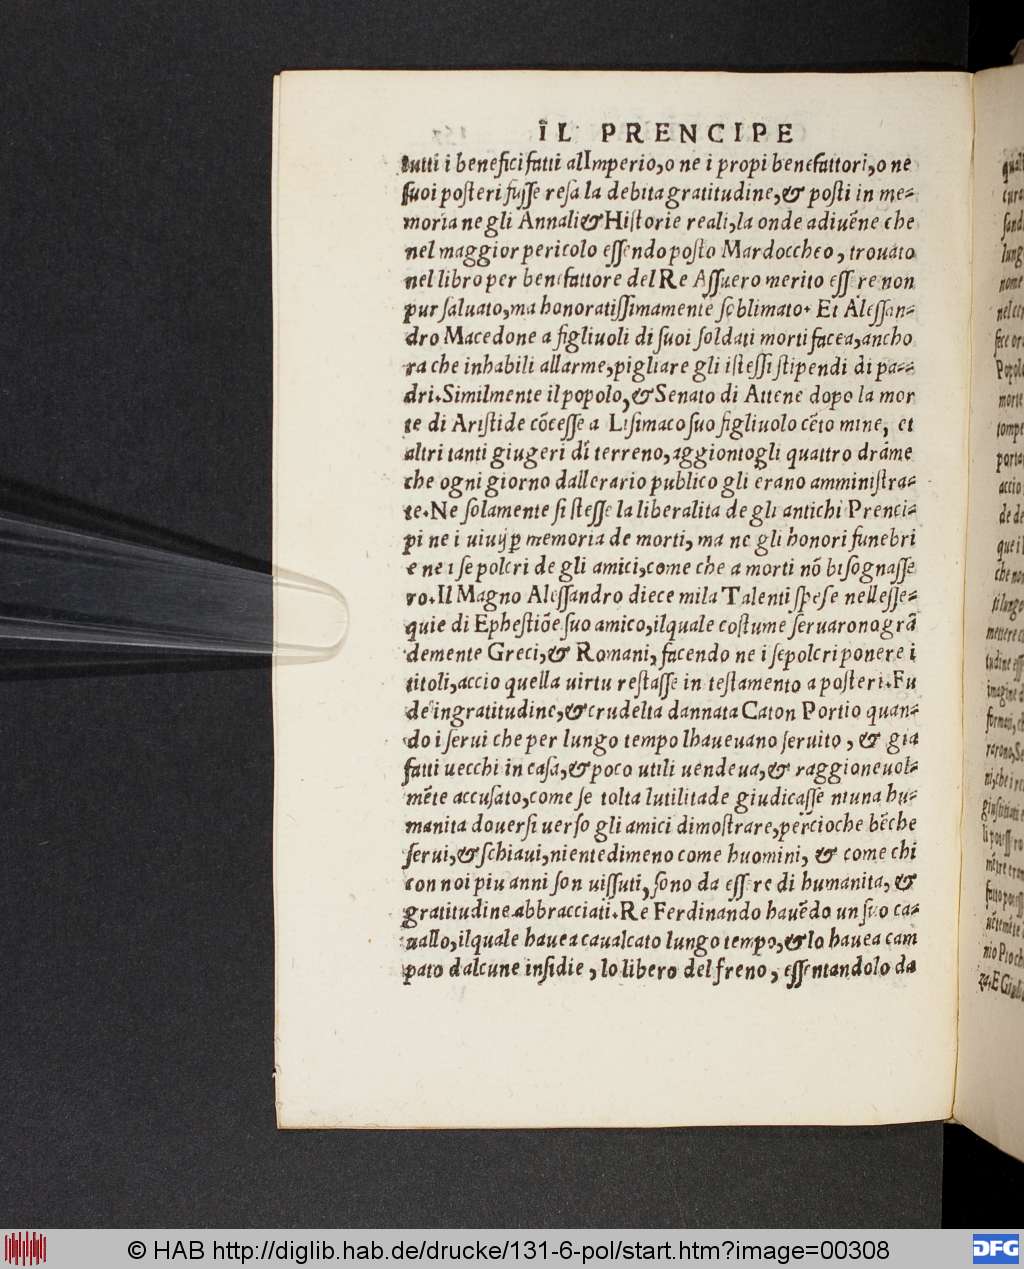 IL PRENCIPE
tutti i benefici fatti al Imperio, o ne i propi benefattori, o ne
suoi posteri fusse resa la debita gratitudine, & posti in me=
moria ne gli Annali & Historie reali, la onde adiuẽne che
nel maggior pericolo essendo posto Mardoccheo, trouato
nel libro per benefattore del Re Assuero merito essere non
pur saluato, ma honoratissimamente seblimato. Et Alessan=
dro Macedone a figliuoli di suoi soldati morti facea, ancho
ra che inhabili allarme, pigliare gli istessi stipendi di pa==
dri. Similmente il popolo, & Senato di Attene dopo la mor
te di Aristide cõcesse a Lisimaco suo figliuolo cẽto mine, et
altri tanti giugeri di terreno, aggiontogli quattro drãme
che ogni giorno dallerario publico gli erano amministra=
te. Ne solamente si stesse la liberalita de gli antichi Prenci=
pi ne i uiuij p̱ memoria de morti, ma ne gli honori funebri
e ne i sepolcri de gli amici, come che a morti nõ bisognasse
ro. Il Magno Alessandro diece mila Talenti spese nellesse=
quie di Ephestiõe suo amico, ilquale costume seruarono grã
demente Greci, & Romani, facendo ne i sepolcri ponere i
titoli, accio quella uirtu restasse in testamento a posteri. Fu
de ingratitudine, & crudelta dannata Caton Portio quan=
do i serui che per lungo tempo lhaueuano seruito, & gia
fatti uecchi in casa, & poco utili uendeua, & raggioneuol=
mẽte accusato, come se tolta lutilitade giudicasse niuna hu=
manita douersi uerso gli amici dimostrare, percioche bẽche
serui, & schiaui, nientedimeno come huomini, & come chi
con noi piu anni son uissuti, sono da essere di humanita, &
gratitudine abbracciati. Re Ferdinando hauẽdo un suo ca=
uallo, ilquale hauea caualcato lungo tempo, & lo hauea cam
pato dalcune insidie, lo libero del freno, essentandolo da
© HAB http://diglib.hab.de/drucke/131-6-pol/start.htm?image=00308
DFG